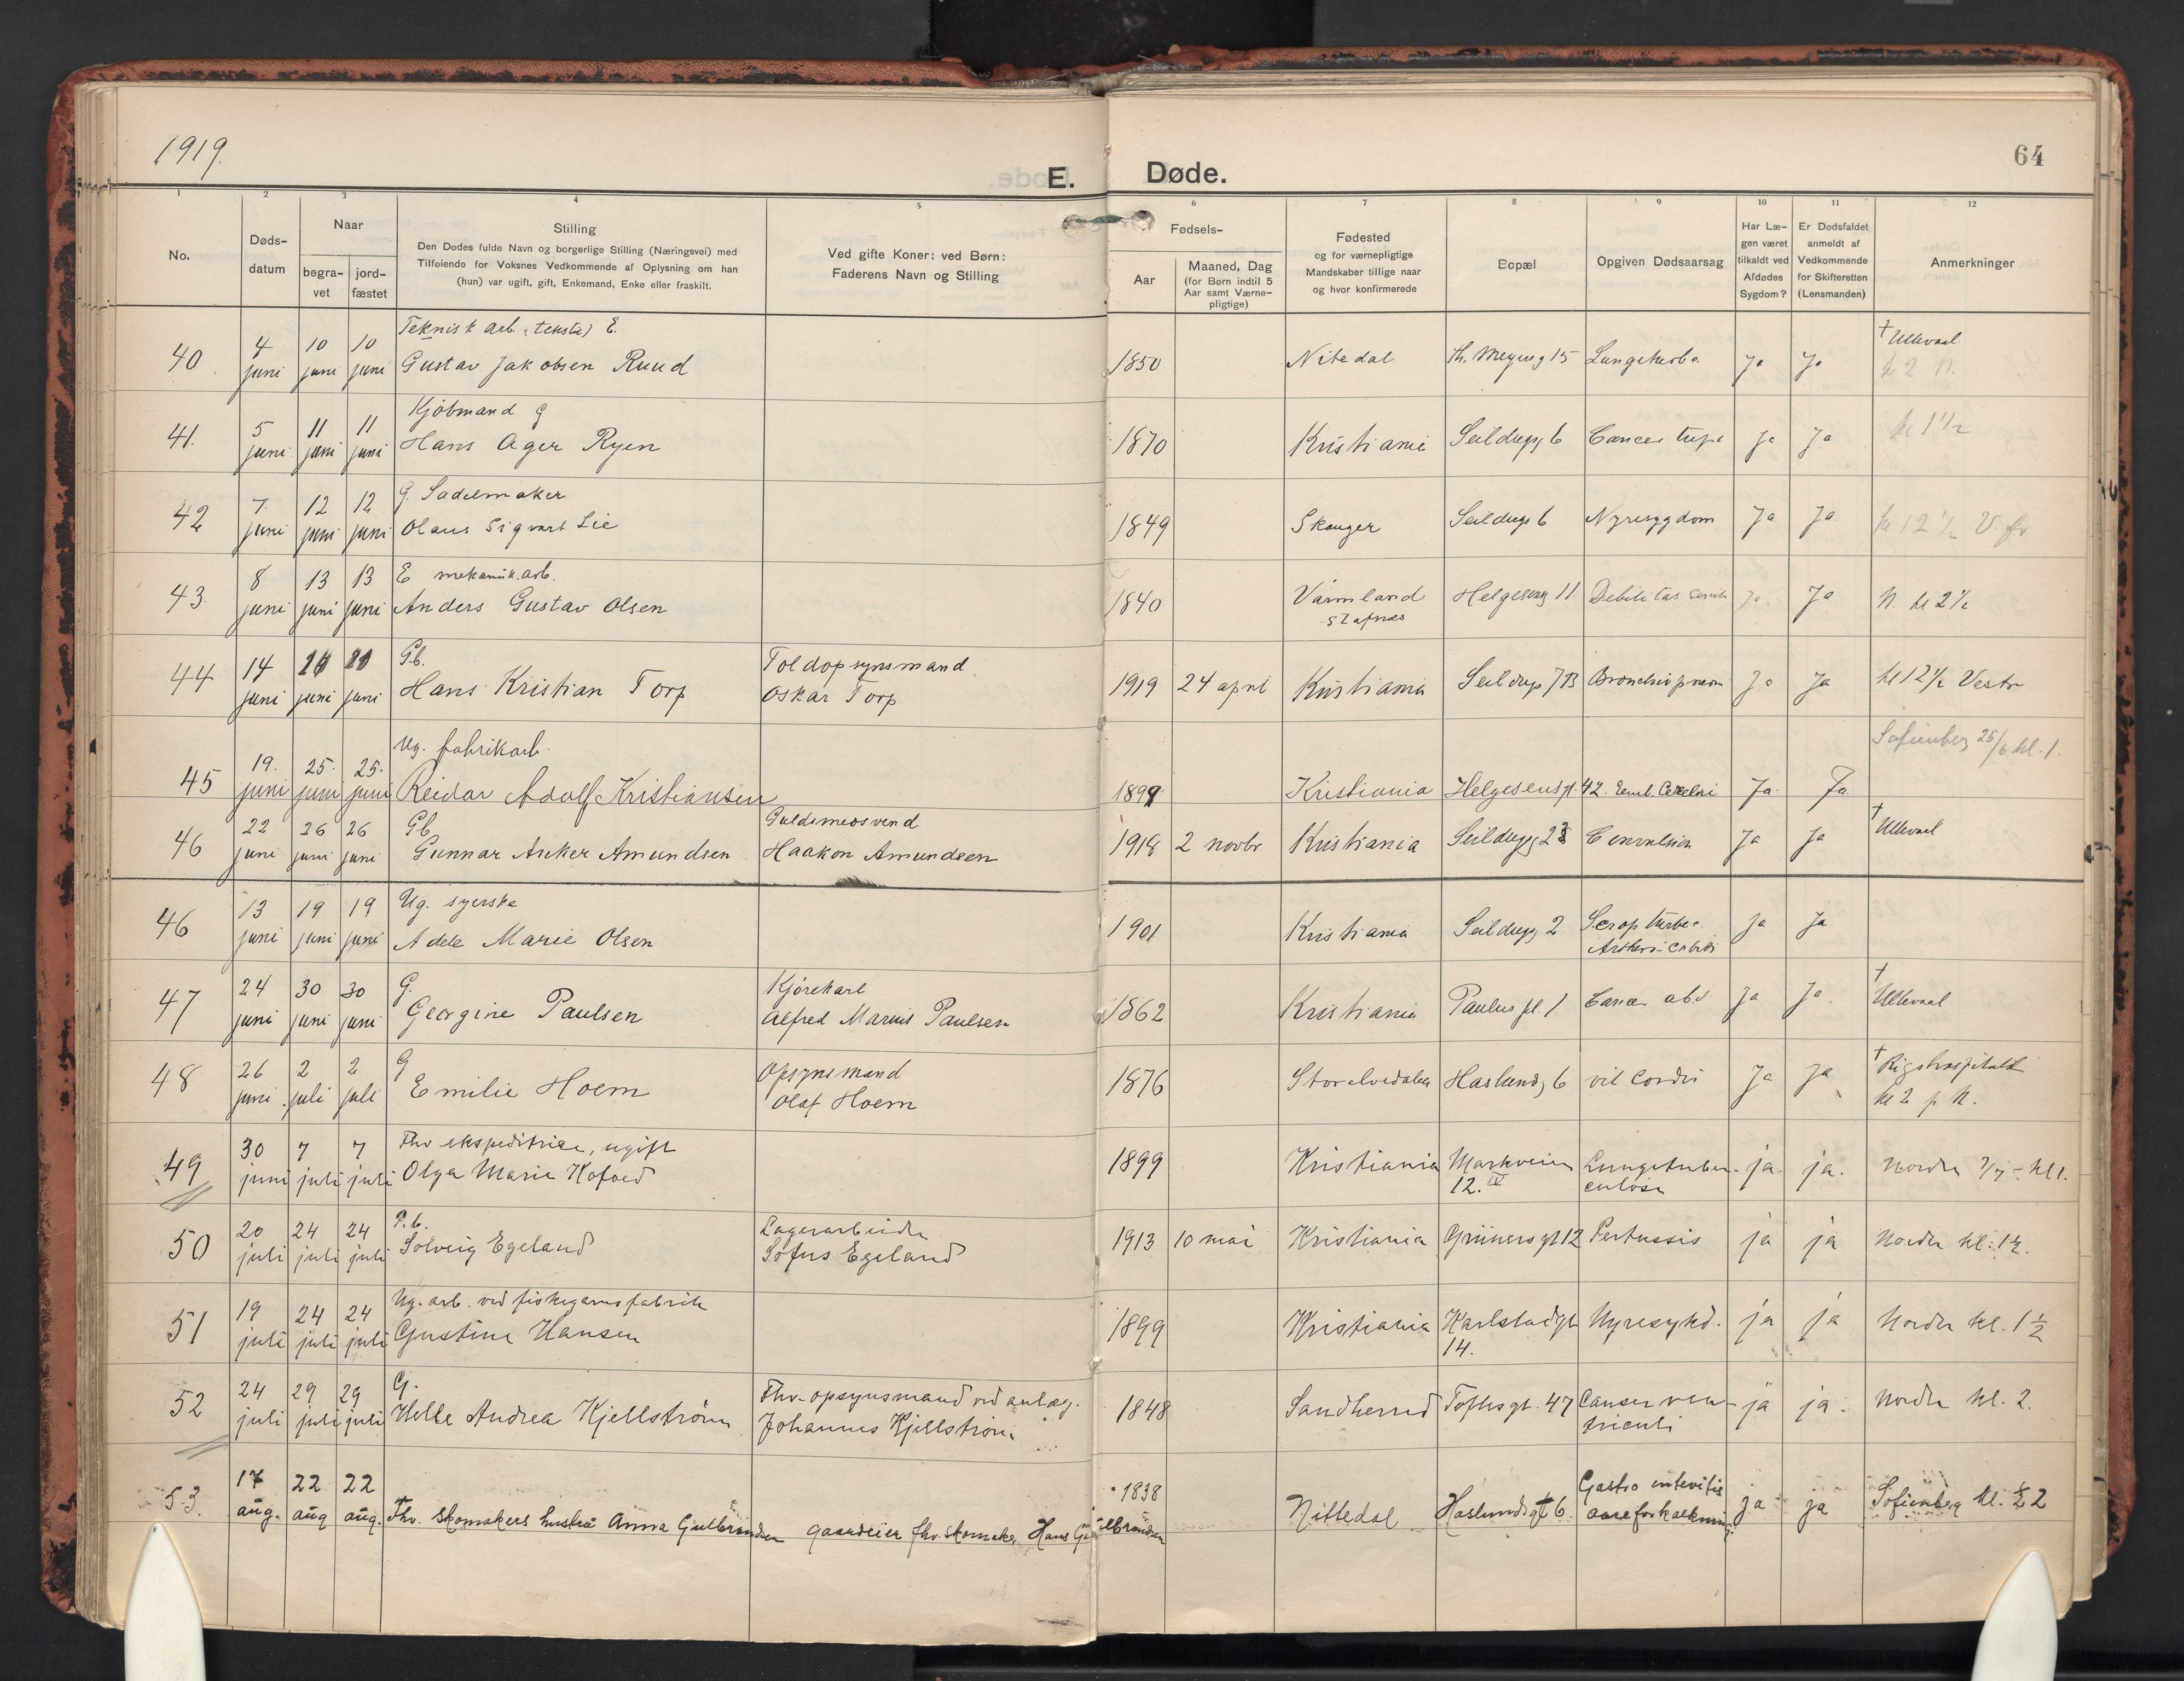 1919.
E. Døde.
64
1 2 3 4 5 6 7 8 9 10 11 12
No.
Døds-datum
Naar
begra-vet
jord-fæstet
Stilling
Den Dødes fulde Navn og borgerlige Stilling (Næringsvei) med
Tilføiende for Voksnes Vedkommende af Oplysning om han
(hun) var ugift, gift, Enkemand, Enke eller fraskilt.
Ved gifte Koner: ved Børn:
Faderens Navn og Stilling
Fødsels-
Aar
Maaned, Dag
(for Børn indtil 5
Aar samt Værne-
pligtige)
Fødested
og for værnepligtige
Mandskaber tillige naar
og hvor konfirmerede
Bopæl
Opgiven Dødsaarsag
Har Læ-
gen været
tilkaldt ved
Afdødes
Sygdom?
Er Dødsfaldet
anmeldt af
Vedkommende
for Skifteretten
(Lensmanden)
Anmerkninger
Teknisk arb. E. † Ullevaal
40 4 juni 10 juni 10 juni Gustav Jakobsen Ruud 1850 Nitedal Th. Meyersg 15 Ja Ja kl 2 N.
Kjøbmand G
41. 5 juni 11 juni 11 juni Hans Ager Ryen 1870 Kristiania Seildugsg 6 Cancer Ja Ja kl 1 1/2
G. Sadelmaker
42 7 juni 12 juni 12 juni Olaus Sigvart Lie 1849 Skauger Seildugs 6 Nyresygdom Ja Ja kl 12 1/2
E mekanik.arb.
43. 8 juni 13 juni 13 juni Anders Gustav Olsen 1840 Värmland Helgesensg 11 Debilitas senilis Ja Ja N. kl 2 1/2
Stafnes
Gb. Toldopsynsmand
44 14 juni juni juni Hans Kristian Torp Oskar Torp 1919 24 april Kristiania Seildugs 7B Ja Ja kl 12 1/2 Vestre
Ug. fabrikarb. Sofienberg 25/6 kl. 1.
45 19. juni 25. juni 25. juni Reidar Adolf Kristiansen 1899 Kristiania Helgesensgt. 42. Ja. Ja
Gb. Guldsmedsvend † Ullevaal
46 22 juni 26 juni 26 juni Gunnar Anker Amundsen Haakon Amundsen 1918 2 novbr Kristiania Seildugsg Ja Ja
Ug. syerske
46 13 juni 19 juni 19 juni Adele Marie Olsen 1901 Kristiania Seildugsg 2 Ja Ja
G. Kjørekarl †
47 24 juni 30 juni 30 juni Georgine Paulsen Alfred Marius Paulsen 1862 Kristiania Paulus pl. 1 Cancer abd Ja Ja Ullevaal
G Opsynsmand † Rigshospitalet
48 26 juni 2 juli 2 juli Emilie Hoem Olaf Hoem 1876 Storelvedalen Haslundsg 6 vit. Cordis Ja Ja kl 2 p N.
Fhv ekspeditrice, ugift
49 30 juni 7 juli 7 juli Olga Marie Kofoed 1899 Kristiania Markveien 12. IV Lungetuberculose ja. ja. Nordre 7/7 - kl 1.
P.b. Lagerarbeider
50 20 juli 24 juli 24 juli Solveig Egeland Sofus Egeland 1913 10 mai Kristiania Grünersgt 12 Pertussis ja ja Nordre kl. 1 1/2.
Ug. arb. ved fiskegarnsfabrik
51 19 juli 24 juli 24 juli Gustine Hansen 1899 Kristiania Karlstadgt 14. Nyresykd. ja ja Nordre kl. 1 1/2
G. Fhv. opsynsmand ved anlæg.
52 24 juli 29 juli 29 juli Helle Andrea Kjellstrøm Johannes Kjellstrøm 1848 Sandherred Toftesgt. 47 Canser ventriculi ja ja. Nordre kl. 2.
53. 17 aug. 22 aug 22 aug. Fhv. skomakers hustru Anna Gulbrandsen gaardeier fhv. skomaker Hans Gulbrandsen 1838 Nittedal Haslundsgt 6. Gastro enteritis aareforkalkning ja ja Sofienberg kl. 1/2 2